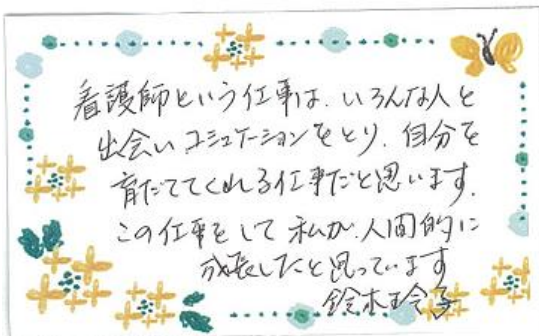 看護師という仕事は、いろんな人と
出会い、コミュニケーションをとり、自分を
育だててくれる仕事だと思います。
この仕事をして私が、人間的に
成長したと思っています
鈴木玲子